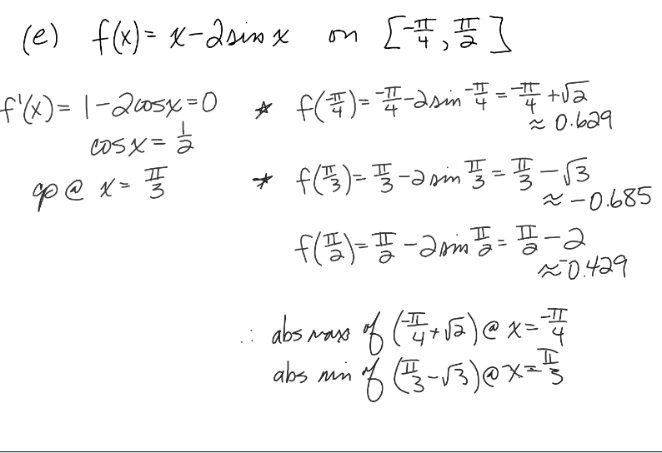 (e) f(x) = x - 2sin x on [-π/4, π/2]
f'(x) = 1 - 2cosx = 0
cosx = 1/2
cp @ x = π/3
* f(-π/4) = -π/4 - 2sin -π/4 = -π/4 + √2
≈ 0.629
* f(π/3) = π/3 - 2sin π/3 = π/3 - √3
≈ -0.685
f(π/2) = π/2 - 2sin π/2 = π/2 - 2
≈ -0.429
∴ abs max of (-π/4 + √2) @ x = -π/4
abs min of (π/3 - √3) @ x = π/3